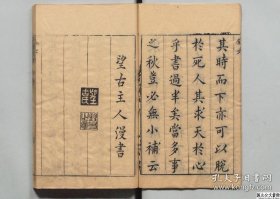 其時而下亦可以脫
於死人其求天於心
乎書過半矣當多事
之秋豈必無小補云
望古主人漫書